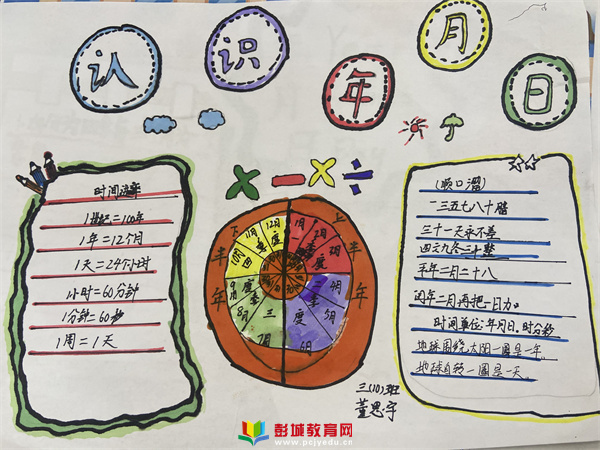 认识年月日
时间
1世纪=100年
1年=12个月
1天=24个小时
1小时=60分钟
1分钟=60秒
1周=1天
× — × ÷
上半年
下半年
1月
2月
3月
季度
4月
6月
二季度
7月
8月
9月
三季度
10月
11月
12月
四季度
(顺口溜)
一三五七八十腊
三十一天永不差
四六九冬三十整
平年二月二十八
闰年二月再把一日加
时间单位:年月日、时分秒
地球围绕太阳一圈是一年
地球自转一圈是一天
三(10)班
董思宇
彭城教育网
www.pcjyedu.cn